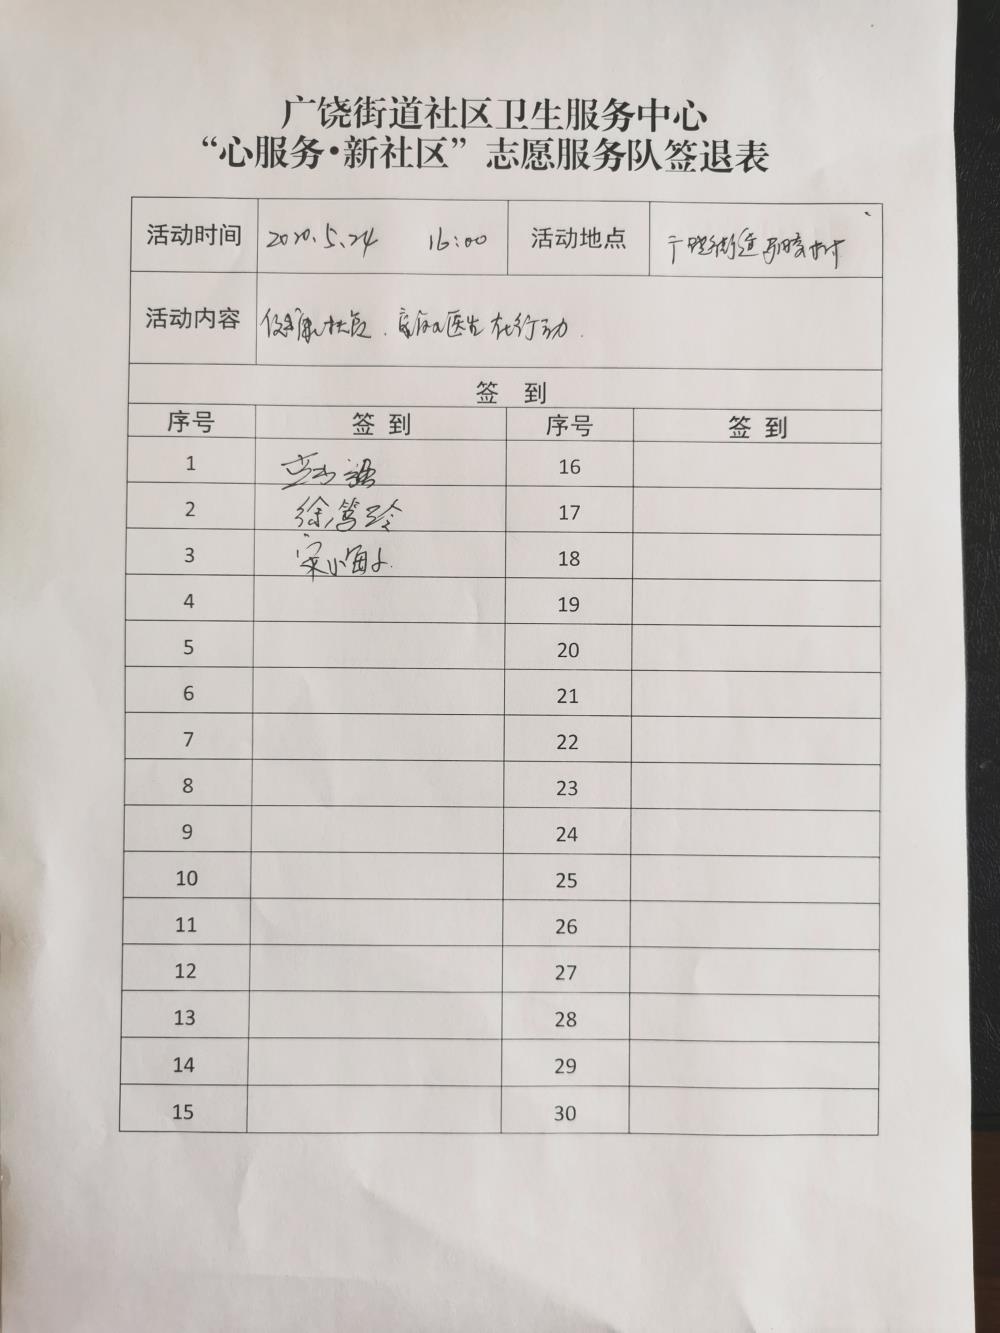 广饶街道社区卫生服务中心
“心服务·新社区”志愿服务队签退表
活动时间 2020.5.24 16:00 活动地点 广饶街道
活动内容 健康扶贫.家庭医生在行动.
签 到
序号 签 到 序号 签 到
1 16
2 徐笃玲 17
3 宋小海 18
4 19
5 20
6 21
7 22
8 23
9 24
10 25
11 26
12 27
13 28
14 29
15 30